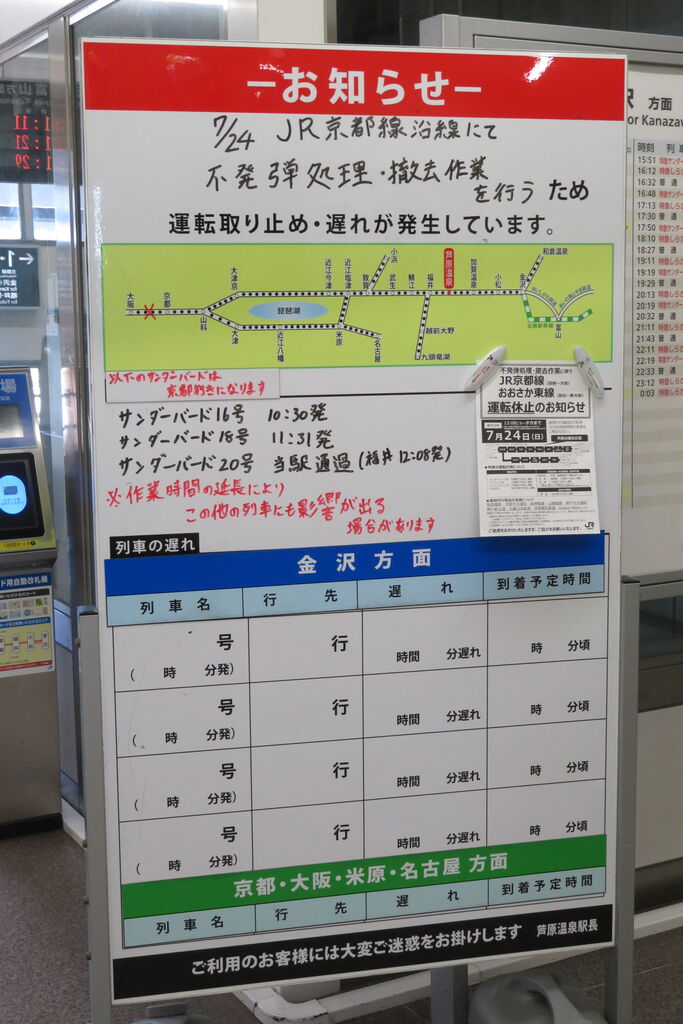 ーお知らせー
7/24 JR京都線沿線にて
不発弾処理・撤去作業
を行う ため
運転取り止め・遅れが発生しています。
大阪
京都
山科
大津京
大津
琵琶湖
近江今津
近江塩津
近江八幡
米原
名古屋
敦賀
小浜
武生
鯖江
福井
越前大野
九頭竜湖
芦原温泉
加賀温泉
小松
金沢
和倉温泉
北陸新幹線
富山
以下のサンダーバードは
京都行きになります
サンダーバード16号 10:30発
サンダーバード18号 11:31発
サンダーバード20号 当駅通過(福井12:08発)
※作業時間の延長により
この他の列車にも影響が出る
場合があります
不発弾処理・撤去作業に伴う
JR京都線
おおさか東線
運転休止のお知らせ
7月24日(日)
JR
列車の遅れ
金沢方面
列車名 行先 遅れ 到着予定時間
号 行 時間 分遅れ 時 分頃
( 時 分発)
号 行 時間 分遅れ 時 分頃
( 時 分発)
号 行 時間 分遅れ 時 分頃
( 時 分発)
号 行 時間 分遅れ 時 分頃
( 時 分発)
京都・大阪・米原・名古屋 方面
列車名 行先 遅れ 到着予定時間
ご利用のお客様には大変ご迷惑をお掛けします 芦原温泉駅長
方面
or Kanazaw
時刻 列車
15:51
16:12
16:32 普通
16:48
17:13
17:30 普通
17:50
18:10
18:27 普通
19:11
19:19
19:29 普通
20:13
20:19
20:32 普通
21:11
21:43 普通
22:11
22:19
22:33 普通
23:12
0:03
富山方
11
21
29
ード用自動改札機